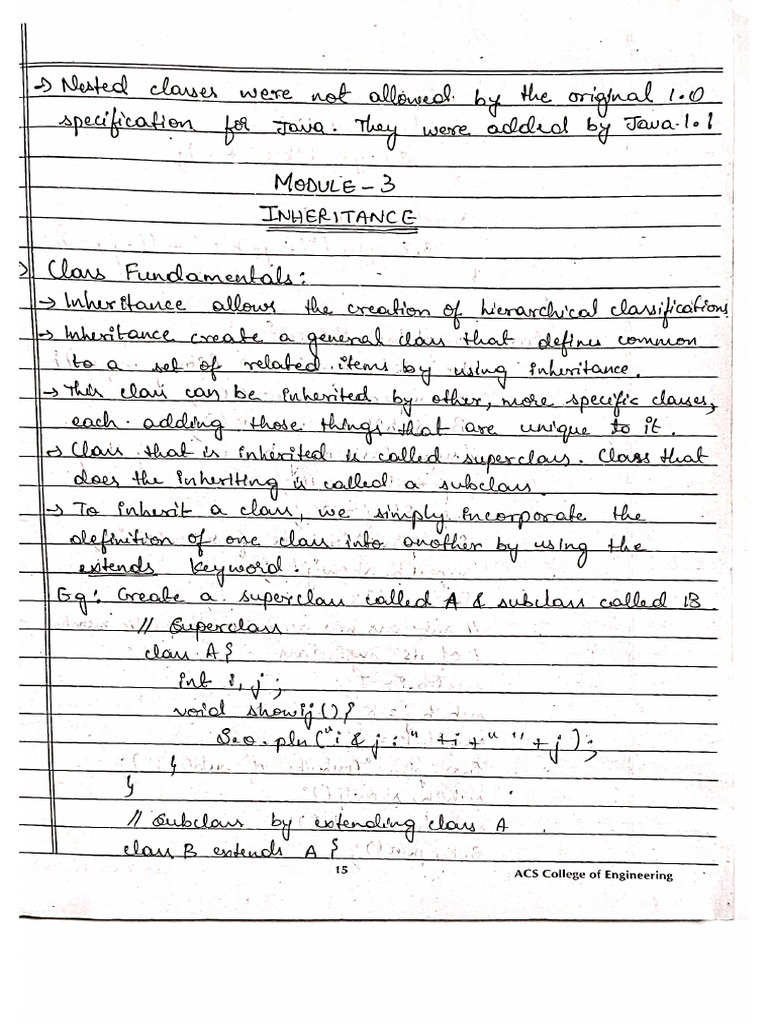 → Nested classes were not allowed by the original 1.0
specification for Java. They were added by Java 1.1
MODULE - 3
INHERITANCE
> Class Fundamentals:
→ Inheritance allows the creation of hierarchical classifications
→ Inheritance create a general class that defines common
to a set of related items by using inheritance.
→ This class can be inherited by other, more specific classes,
each adding those things that are unique to it.
→ Class that is inherited is called superclass. Class that
does the inheriting is called a subclass.
→ To inherit a class, we simply incorporate the
definition of one class into another by using the
extends keyword.
Eg: Create a superclass called A & subclass called B
// Superclass
class A {
int i, j ;
void showij () {
S.o.pln ("i & j : " + i + " " + j );
}
}
// Subclass by extending class A
class B extends A {
15
ACS College of Engineering